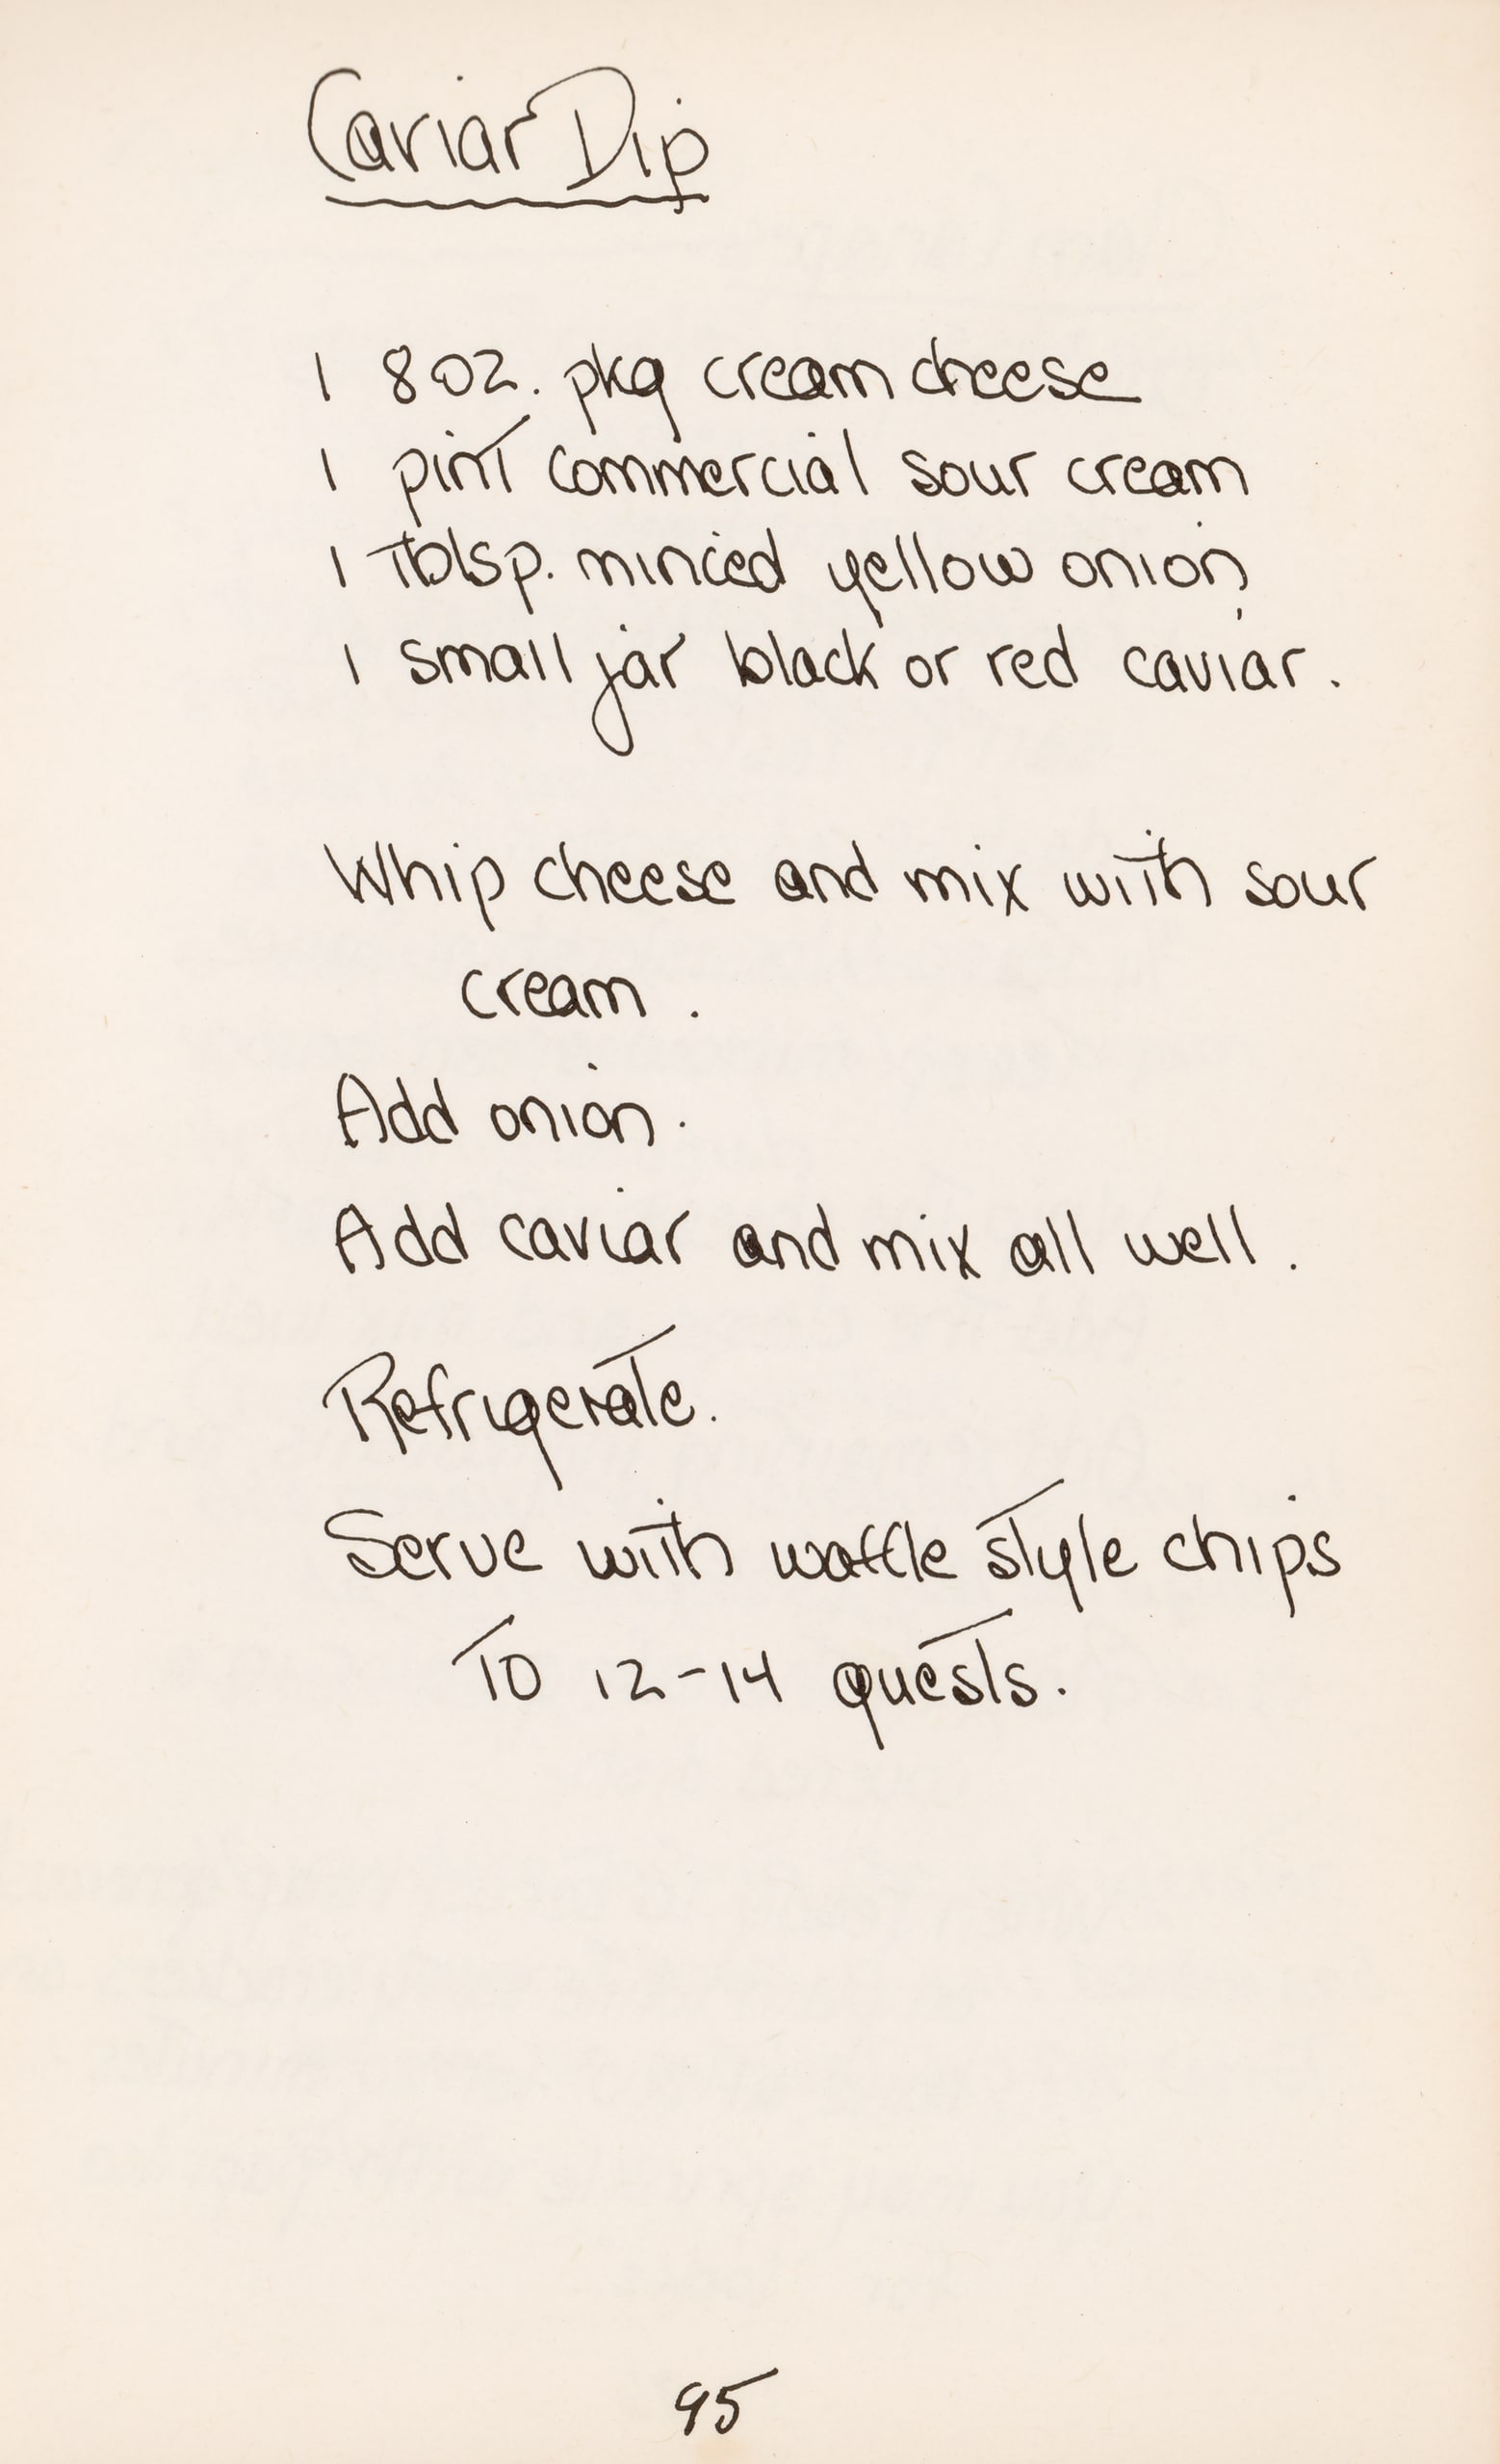 Caviar Dip
1 8 oz. pkg cream cheese
1 pint commercial sour cream
1 Tblsp. minced yellow onion
1 small jar black or red caviar.
Whip cheese and mix with sour
cream.
Add onion.
Add caviar and mix all well.
Refrigerate.
Serve with waffle style chips
To 12-14 guests.
95